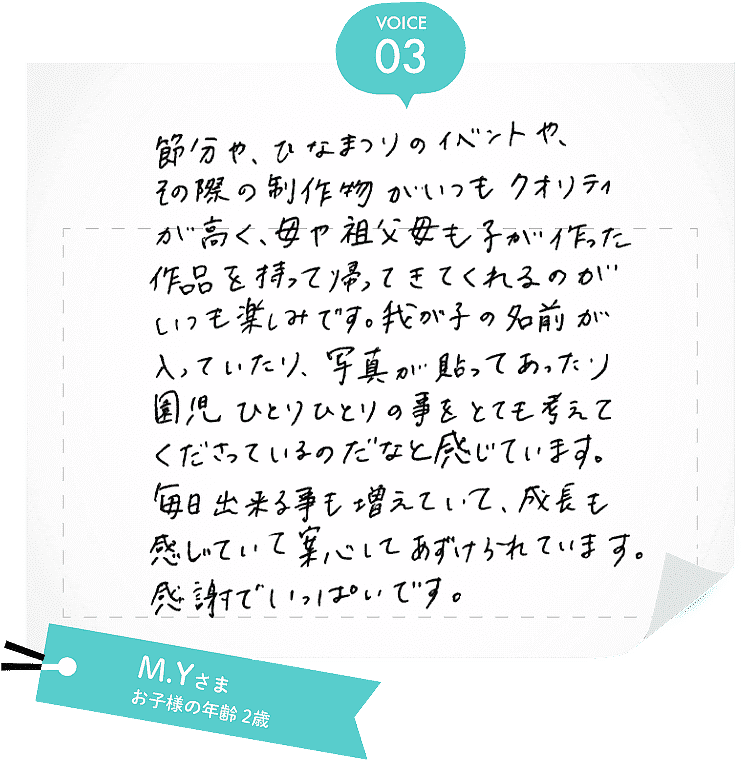 VOICE
03
節分や、ひなまつりのイベントや、
その際の制作物がいつもクオリティ
が高く、母や祖父母も子が作った
作品を持って帰ってきてくれるのが
いつも楽しみです。我が子の名前が
入っていたり、写真が貼ってあったり
園児ひとりひとりの事をとても考えて
くださっているのだなと感じています。
毎日出来る事も増えていて、成長も
感じていて案心してあずけられています。
感謝でいっぱいです。
M.Yさま
お子様の年齢 2歳